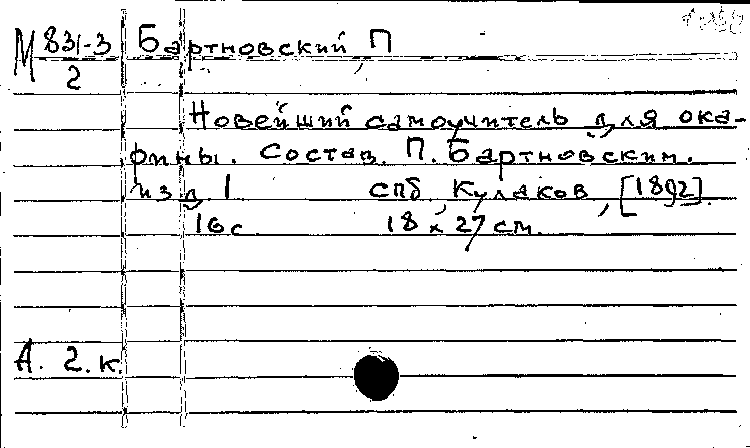 М 831-3/2 Бартновский, П
Новейший самоучитель для ока-
рины. Состав. П. Бартновским.
изд. 1 спб, Кулаков, [1892].
16 с 18 x 27 см.
А. 2. к.